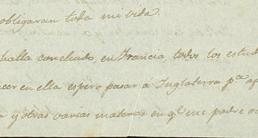 obligaran toda mi vida.
halla concluido, en Francia, todos los estud
cer en ella espero pasar á Inglaterra pª ap
a y otras varias materias en qe. me padre